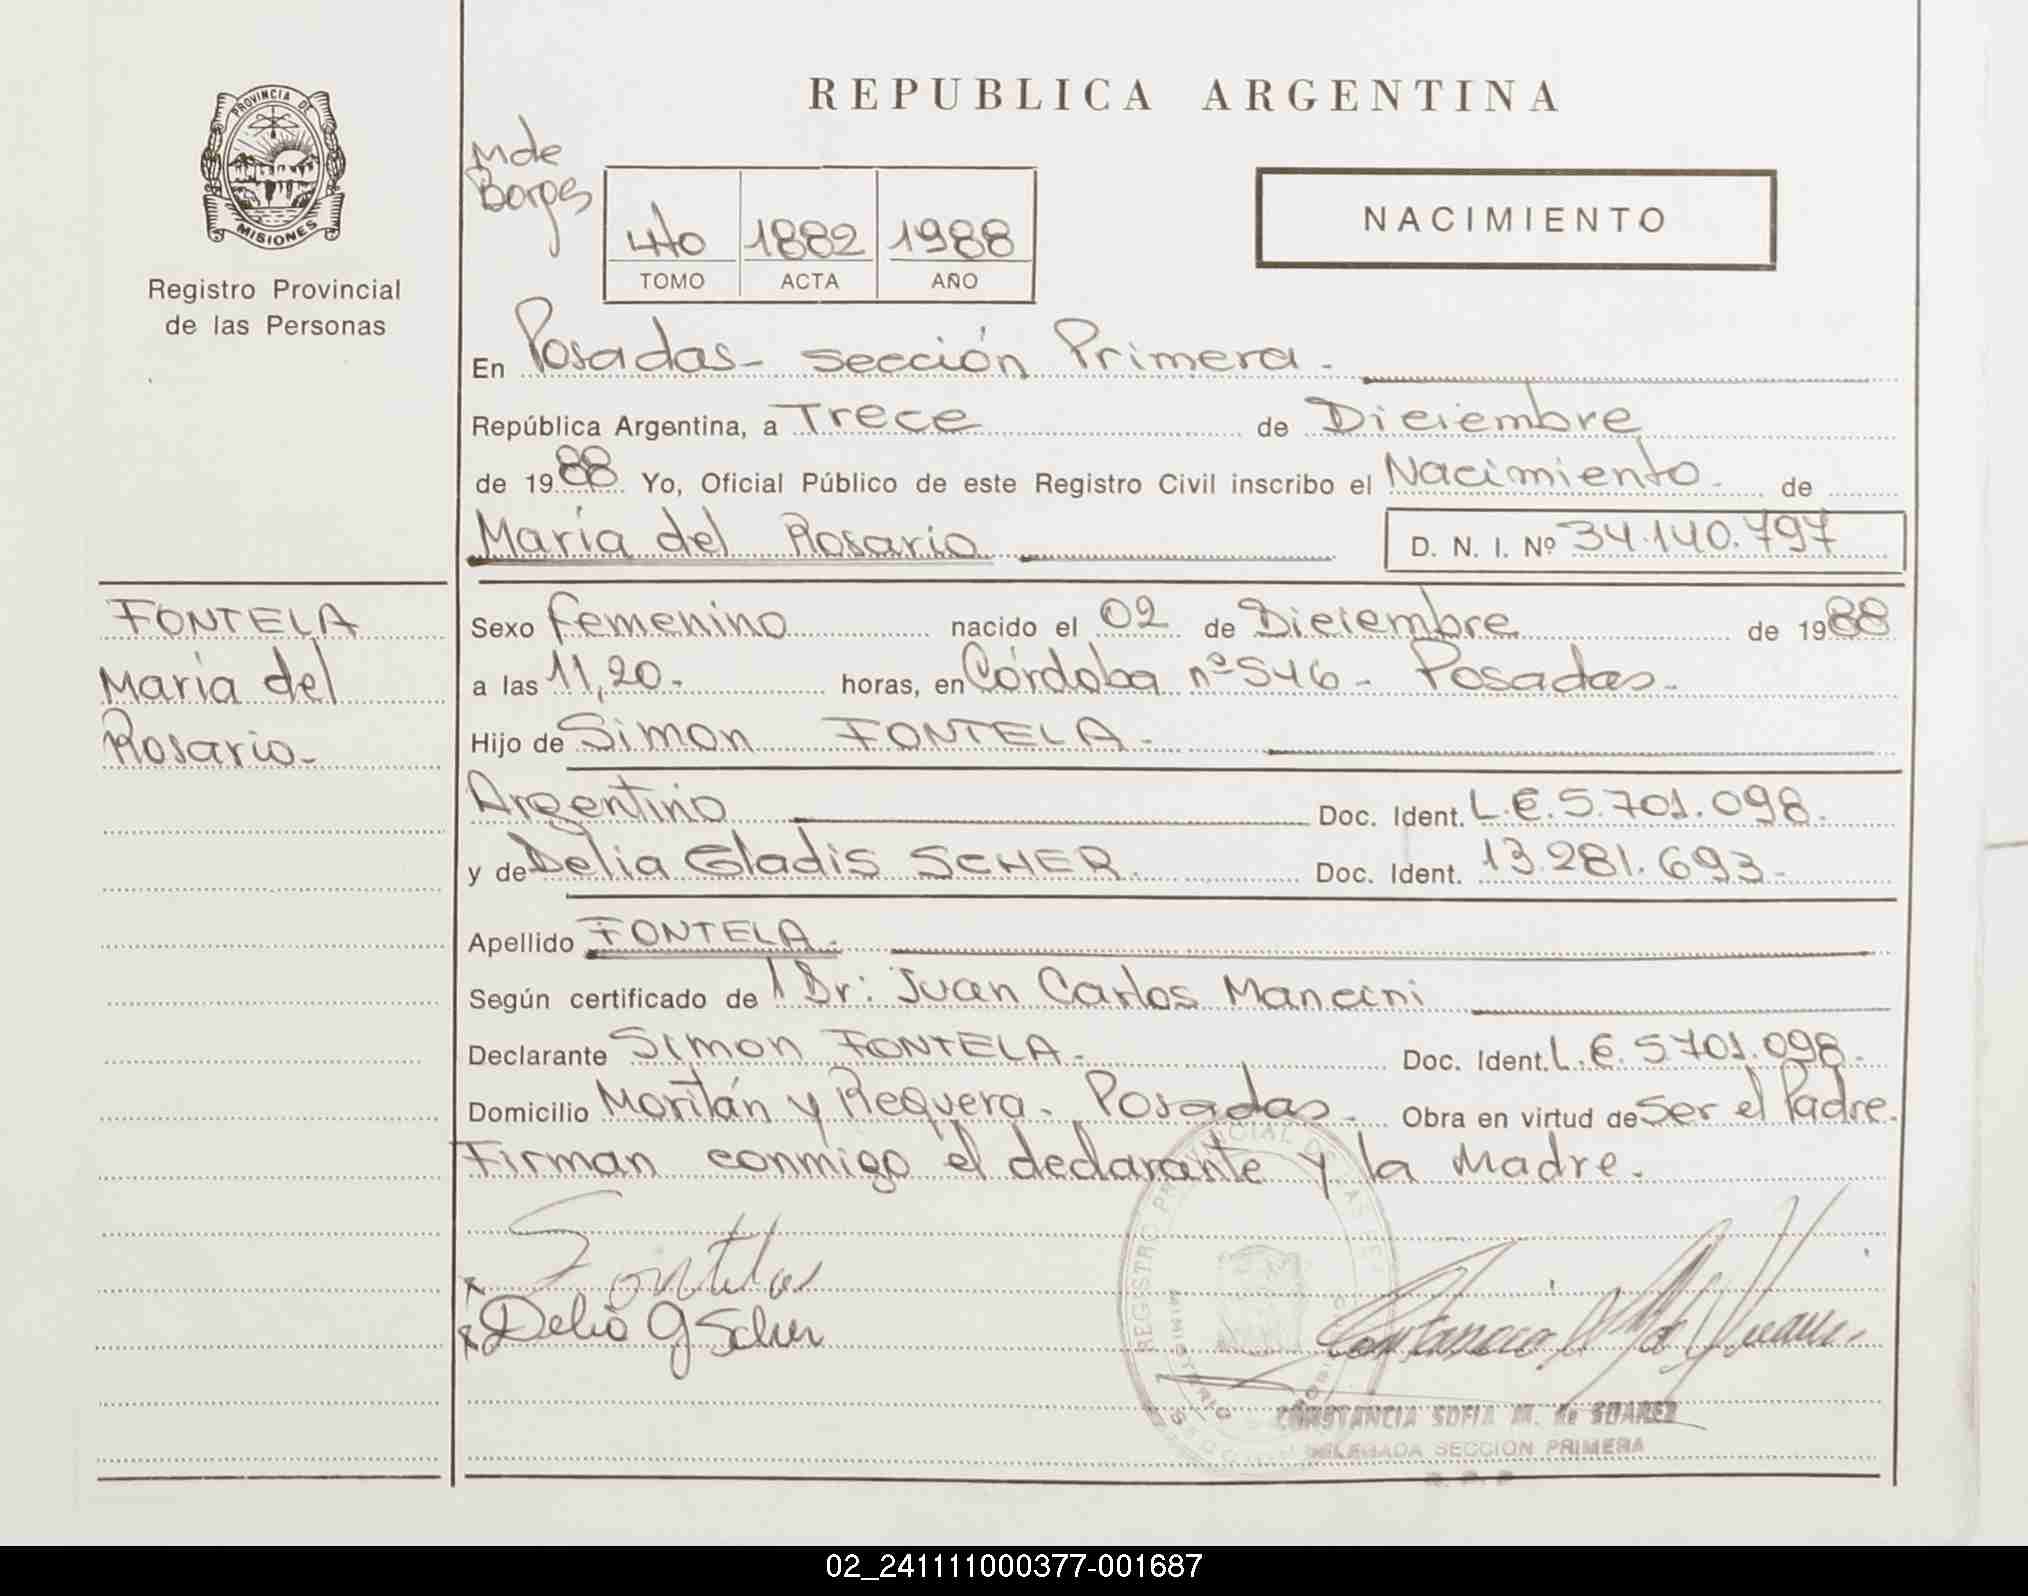 PROVINCIA DE
MISIONES
Registro Provincial
de las Personas
REPUBLICA ARGENTINA
M de
Borges
NACIMIENTO
4to 1882 1988
TOMO ACTA AÑO
En Posadas - sección Primera.
República Argentina, a Trece de Diciembre
de 1988 Yo, Oficial Público de este Registro Civil inscribo el Nacimiento de
María del Rosario D. N. I. Nº 34.140.797
FONTELA
María del
Rosario-
Sexo femenino nacido el 02 de Diciembre de 1988
a las 11,20- horas, en Córdoba nº 546 - Posadas-
Hijo de Simon FONTELA-
Argentino Doc. Ident. L.E. 5.701.098.
y de Delia Gladis SCHER Doc. Ident. 13.281.693-
Apellido FONTELA.
Según certificado de Dr: Juan Carlos Mancini
Declarante Simon FONTELA- Doc. Ident. L.E. 5701.098-
Domicilio Moritán y Requera- Posadas- Obra en virtud de ser el Padre.
Firman conmigo el declarante y la Madre.
Fontela
Delia G Scher
REGISTRO PROVINCIAL DE LAS PE
CONSTANCIA SOFIA M. de SUAREZ
DELEGADA SECCION PRIMERA
R. P. P.
02_241111000377-001687